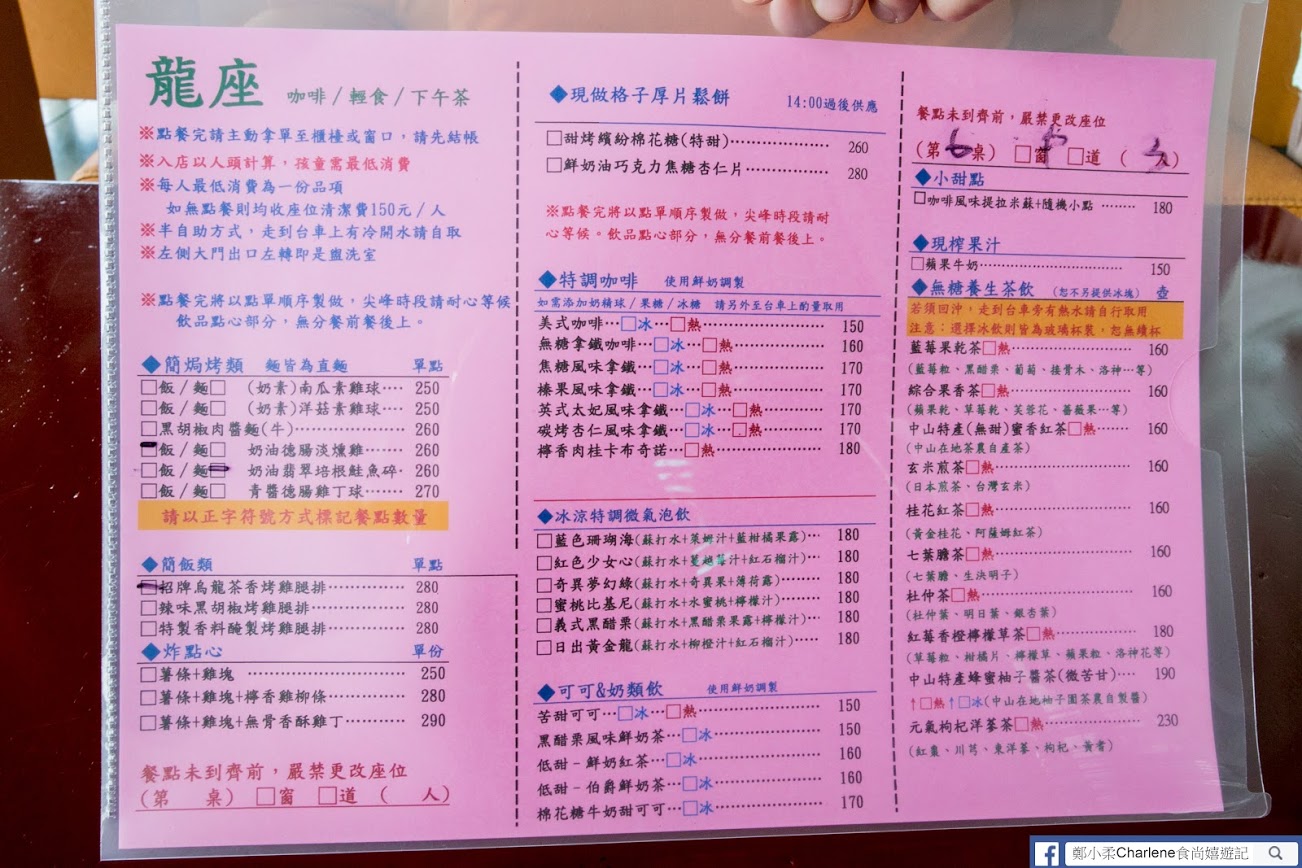 龍座 咖啡/輕食/下午茶
※點餐完請主動拿單至櫃檯或窗口,請先結帳
※入店以人頭計算,孩童需最低消費
※每人最低消費為一份品項
如無點餐則均收座位清潔費150元/人
※半自助方式,走到台車上有冷開水請自取
※左側大門出口左轉即是盥洗室
※點餐完將以點單順序製做,尖峰時段請耐心等候
飲品點心部分,無分餐前餐後上。
◆簡焗烤類 麵皆為直麵 單點
□飯/麵□ (奶素)南瓜素雞球···· 250
□飯/麵□ (奶素)洋菇素雞球···· 250
□黑胡椒肉醬麵(牛)·············· 260
□飯/麵□ 奶油德腸淡燻雞······ 260
□飯/麵□ 奶油翡翠培根鮭魚碎· 260
□飯/麵□ 青醬德腸雞丁球······· 270
請以正字符號方式標記餐點數量
◆簡飯類 單點
□招牌烏龍茶香烤雞腿排·············· 280
□辣味黑胡椒烤雞腿排················ 280
□特製香料醃製烤雞腿排·············· 280
◆炸點心 單份
□薯條+雞塊 ························ 250
□薯條+雞塊+檸香雞柳條 ·········· 280
□薯條+雞塊+無骨香酥雞丁·········· 290
餐點未到齊前,嚴禁更改座位
(第 桌) □窗 □道 ( 人)
◆現做格子厚片鬆餅 14:00過後供應
□甜烤繽紛棉花糖(特甜)················· 260
□鮮奶油巧克力焦糖杏仁片··············· 280
※點餐完將以點單順序製做,尖峰時段請耐
心等候。飲品點心部分,無分餐前餐後上。
◆特調咖啡 使用鮮奶調製
如需添加奶精球/果糖/冰糖 請另外至台車上酌量取用
美式咖啡···□冰···□熱····················· 150
無糖拿鐵咖啡···□冰···□熱················ 160
焦糖風味拿鐵···□冰···□熱················ 170
榛果風味拿鐵···□冰···□熱················ 170
英式太妃風味拿鐵···□冰···□熱··········· 170
碳烤杏仁風味拿鐵···□冰···□熱··········· 170
檸香肉桂卡布奇諾···□熱·················· 180
◆冰涼特調微氣泡飲
□藍色珊瑚海(蘇打水+萊姆汁+藍柑橘果露)··· 180
□紅色少女心(蘇打水+蔓越莓汁+紅石榴汁)··· 180
□奇異夢幻綠(蘇打水+奇異果+薄荷露)········ 180
□蜜桃比基尼(蘇打水+水蜜桃+檸檬汁)······· 180
□義式黑醋栗(蘇打水+黑醋栗果露+檸檬汁)··· 180
□日出黃金龍(蘇打水+柳橙汁+紅石榴汁)···· 180
◆可可&奶類飲 使用鮮奶調製
苦甜可可···□冰···□熱····················· 150
黑醋栗風味鮮奶茶···□冰··················· 150
低甜-鮮奶紅茶···□冰····················· 160
低甜-伯爵鮮奶茶···□冰··················· 160
棉花糖牛奶甜可可···□冰··················· 170
餐點未到齊前,嚴禁更改座位
(第七桌) □窗 □道 ( 人)
◆小甜點
□咖啡風味提拉米蘇+隨機小點 ········ 180
◆現榨果汁
□蘋果牛奶······························ 150
◆無糖養生茶飲 (恕不另提供冰塊) 壺
若須回沖,走到台車旁有熱水請自行取用
注意:選擇冰飲則皆為玻璃杯裝,恕無續杯
藍莓果乾茶□熱························ 160
(藍莓粒、黑醋栗、葡萄、接骨木、洛神···等)
綜合果香茶□熱························ 160
(蘋果乾、草莓乾、芙蓉花、薔薇果···等)
中山特產(無甜)蜜香紅茶□熱········ 160
(中山在地茶農自産茶)
玄米煎茶□熱·························· 160
(日本煎茶、台灣玄米)
桂花紅茶□熱·························· 160
(黃金桂花、阿薩姆紅茶)
七葉膽茶□熱·························· 160
(七葉膽、生決明子)
杜仲茶□熱···························· 160
(杜仲葉、明日葉、銀杏葉)
紅莓香橙檸檬草茶□熱················ 180
(草莓粒、柑橘片、檸檬草、蘋果粒、洛神花等)
中山特產蜂蜜柚子醬茶(微苦甘)···· 190
↑□熱↑□冰(中山在地柚子園茶農自製醬)
元氣枸杞洋蔘茶□熱·················· 230
(紅棗、川芎、東洋蔘、枸杞、黃耆)
鄭小柔Charlene食尚嬉遊記